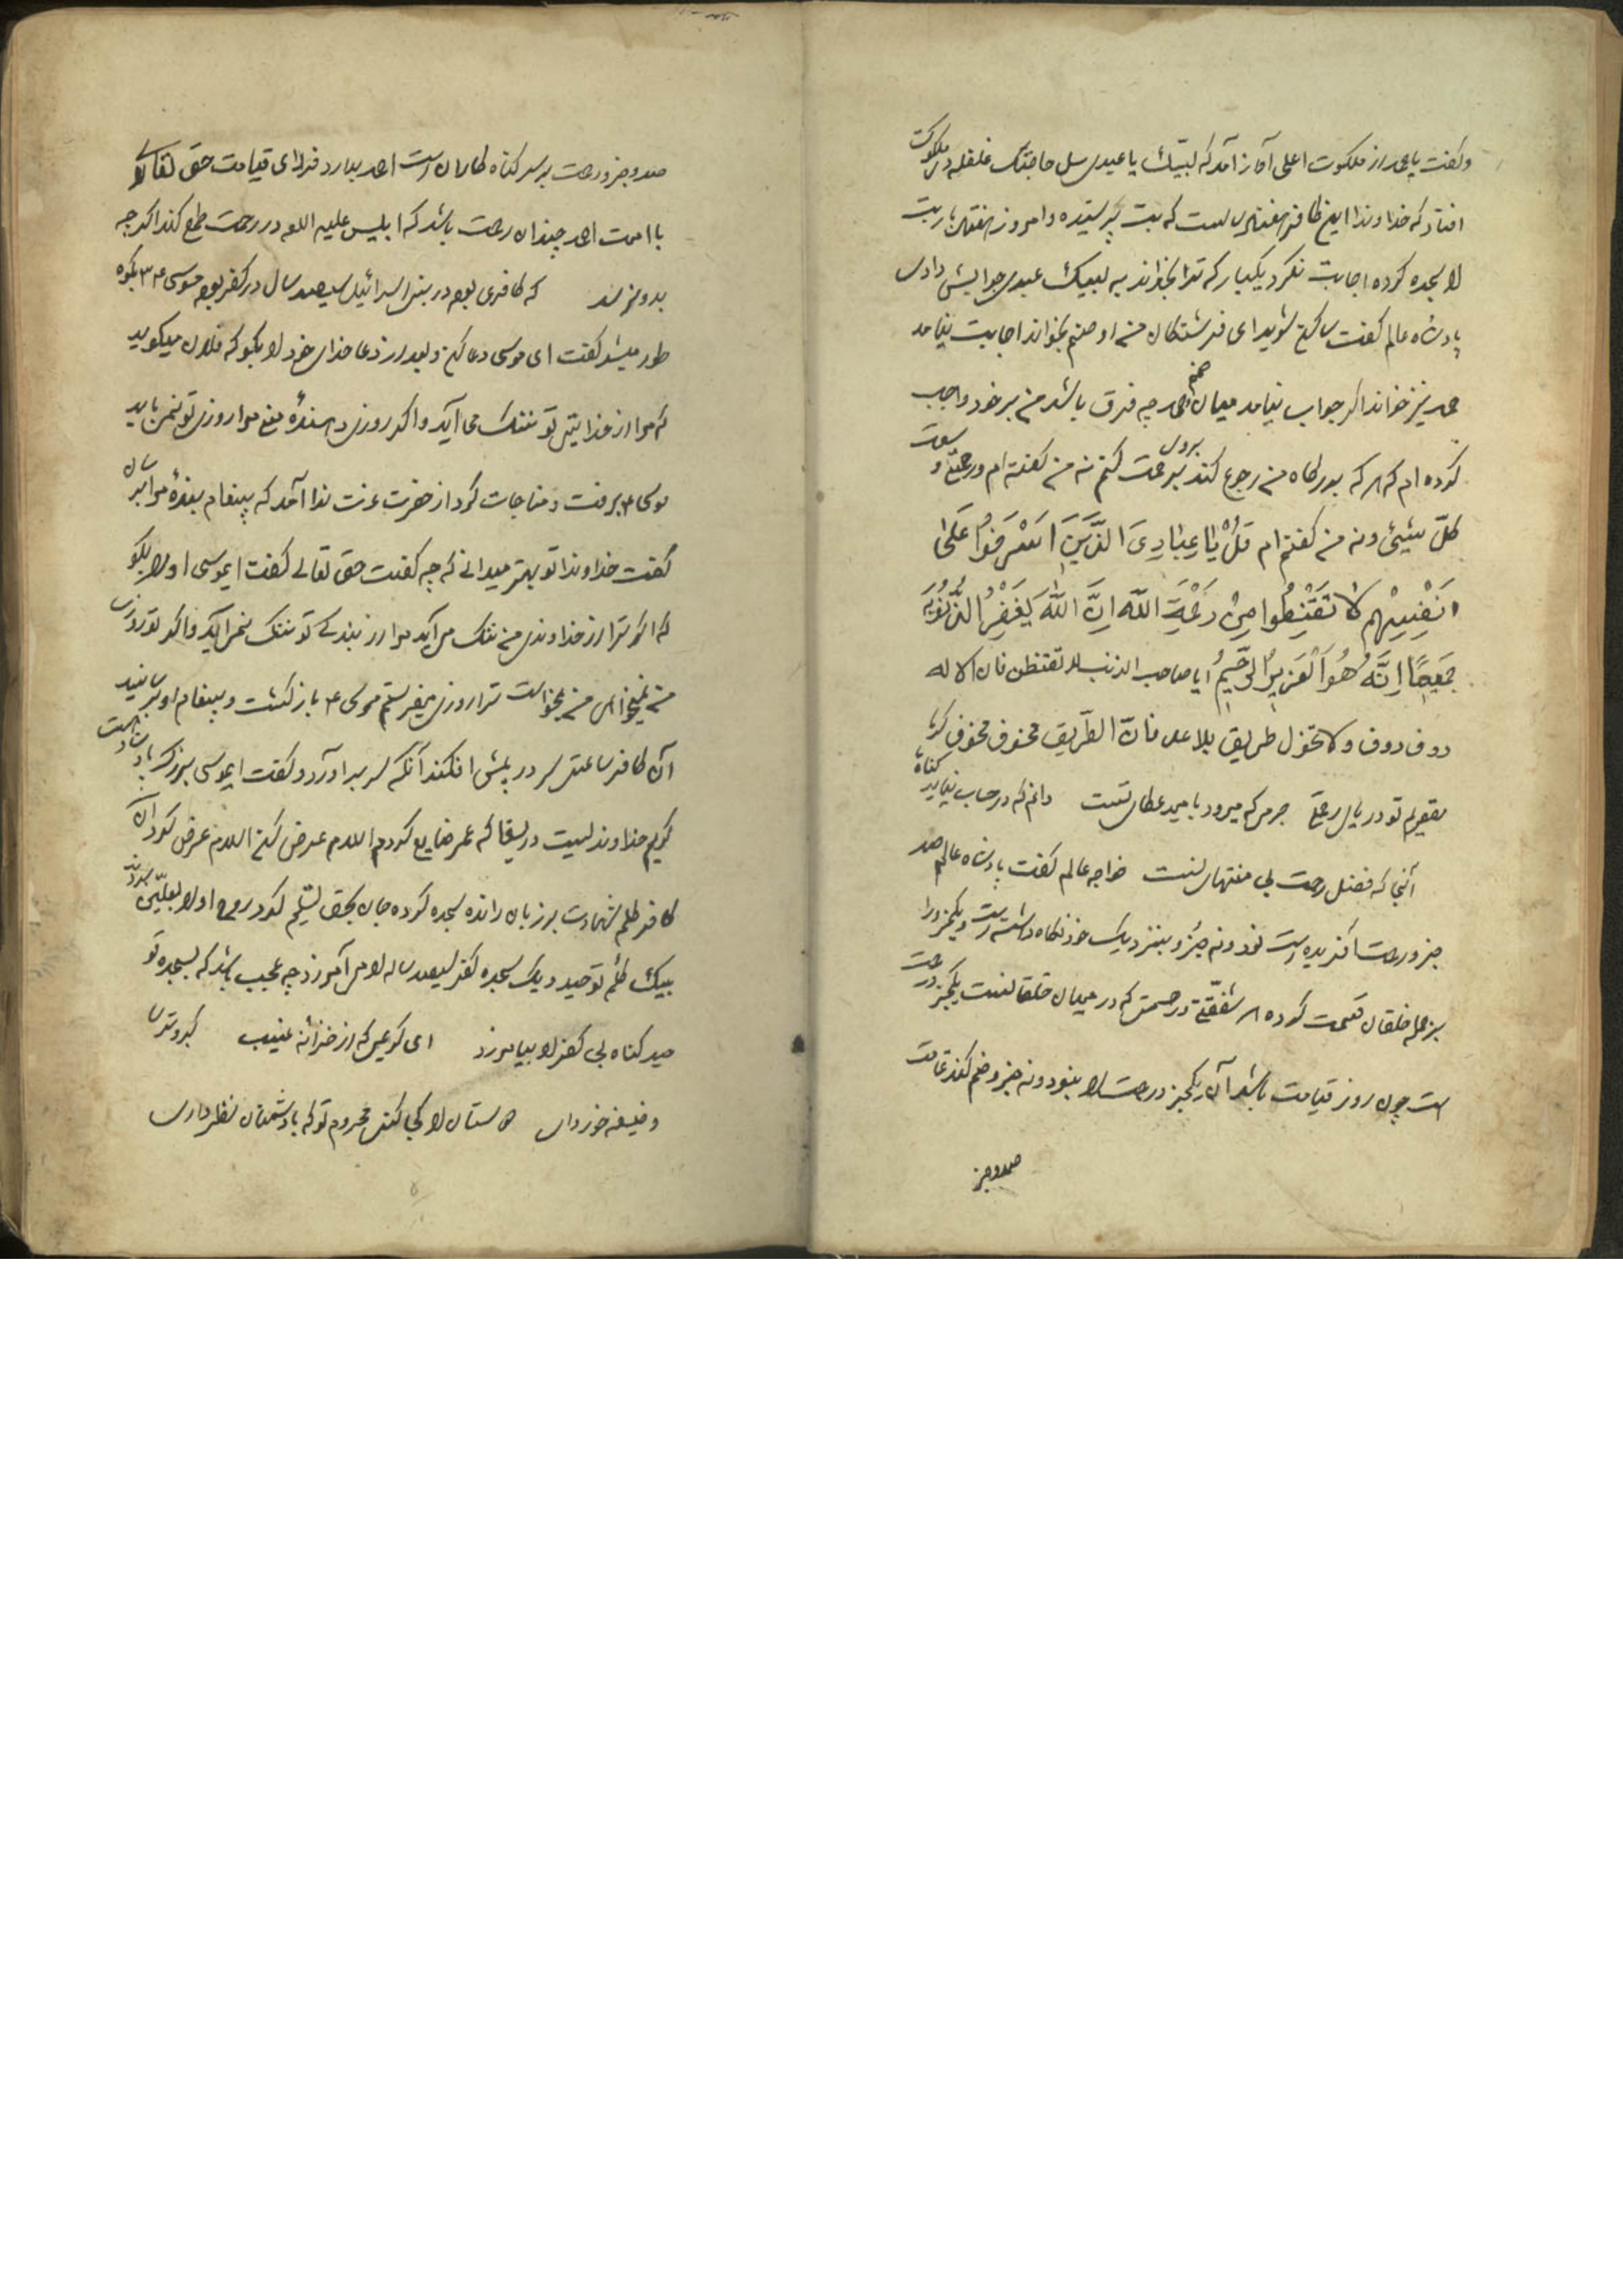 وگفت یا صمد از ملکوت اعلی آواز آمد که لبّیک یا عبدی سل حاجتک غلغله در ملکوت
افتاد که خداوندا این کافر هفتاد سال است که بت پرستیده و امروز هفتاد بار بت
را سجده کرده اجابت نکرد یکبار که ترا بخواند به لبیک عبدی جوابش دادی
پادشاه عالم گفت ساکن شوید ای فرشتگان من او صنم بخواند اجابت نیامد
صمد نیز خواند اگر جواب نیامد میان صنم و صمد چه فرق باشد من بر خود واجب
کرده ام که هر که بدرگاه من رجوع کند بروی رحمت کنم نه من گفته ام ورحمتی وسعت
کلّ شیئ ونه من گفته ام قُلْ یَا عِبَادِیَ الَّذِینَ اَسْرَفُوا عَلَی
اَنْفُسِهِم لَا تَقْنَطُوا مِنْ رَحْمَةِ اللّه اِنَّ اللّٰهَ یَغْفِرُ الذُّنُوبَ
جَمِیعًا اِنَّهُ هُوَ الْعَزِیزُ الرَّحِیمُ ایا صاحب الذنب لا تقنطن فان الاله
رؤف رؤف ولا تحول طریق بلا فانّ الطّریق مخوف مخوف
تو دریای رحمتی جرمی که میرود بامید عطای تست دانم که در حساب نیاید گناه
آنجا که فضل رحمت بی منتهای تست خواجه عالم گفت پادشاه عالم صد
جزو رحمت آفریده است نود ونه جزو بنزدیک خود نگاه داشته است ویکجزو را
بر همه خلقان قسمت کرده هر شفقتی ورحمتی که در میان خلقانست یکجزو رحمت
است چون روز قیامت باشد آن یکجزو رحمت را بنود ونه جزو ضم کند تمامت
صدوجز
صدوجزو رحمت بر سر گناه کاران امت احمد ببارد فردای قیامت حق تعالی را
با امت احمد چندان رحمت باشد که ابلیس علیه اللعه در رحمت طمع کند اگرچه
بدو نرسد که کافری بود در بنی اسرائیل سیصد سال در کفر بود موسی بکوه
طور میشد گفت ای موسی دعا کن وبعد از دعا خدای خود را بگو که فلان میگوید
که مرا از خدایی تو ننگ می آید واگر روزی دهنده منم مرا روزی تو نمی باید
موسی برفت ومناجات کرد از حضرت عزت ندا آمد که پیغام بنده مرا برسان
گفت خداوندا تو بهتر میدانی که چه گفت حق تعالی گفت ایموسی او را بگو
که اگر ترا از خداوندی من ننگ می آید مرا از بندگی تو ننگ نمی آید واگر تو روزی
من نمیخواهی من بخواست ترا روزی میفرستم موسی باز گشت وپیغام او برسانید
آن کافر ساعتی سر در پیش افکند آنگه سر بر آورد وگفت ایموسی بزرگ پادشاهیست
کریم خداوندیست دریغا که عمر ضایع کردم اسلام عرض کن اسلام عرض کرد آن
کافر کلمه شهادت بر زبان رانده سجده کرده جان بحق تسلیم کرد روح او را بعلیین بردند
بیک کلمه توحید ویک سجده کفر سیصد ساله را می آمرزد چه عجب باشد که بسجده تو
صد گناه بی کفر را بیامرزد ای کریمی که از خزانه غیب گبر وترسا
وظیفه خور داری دوستان را کجا کنی محروم تو که با دشمنان نظر داری